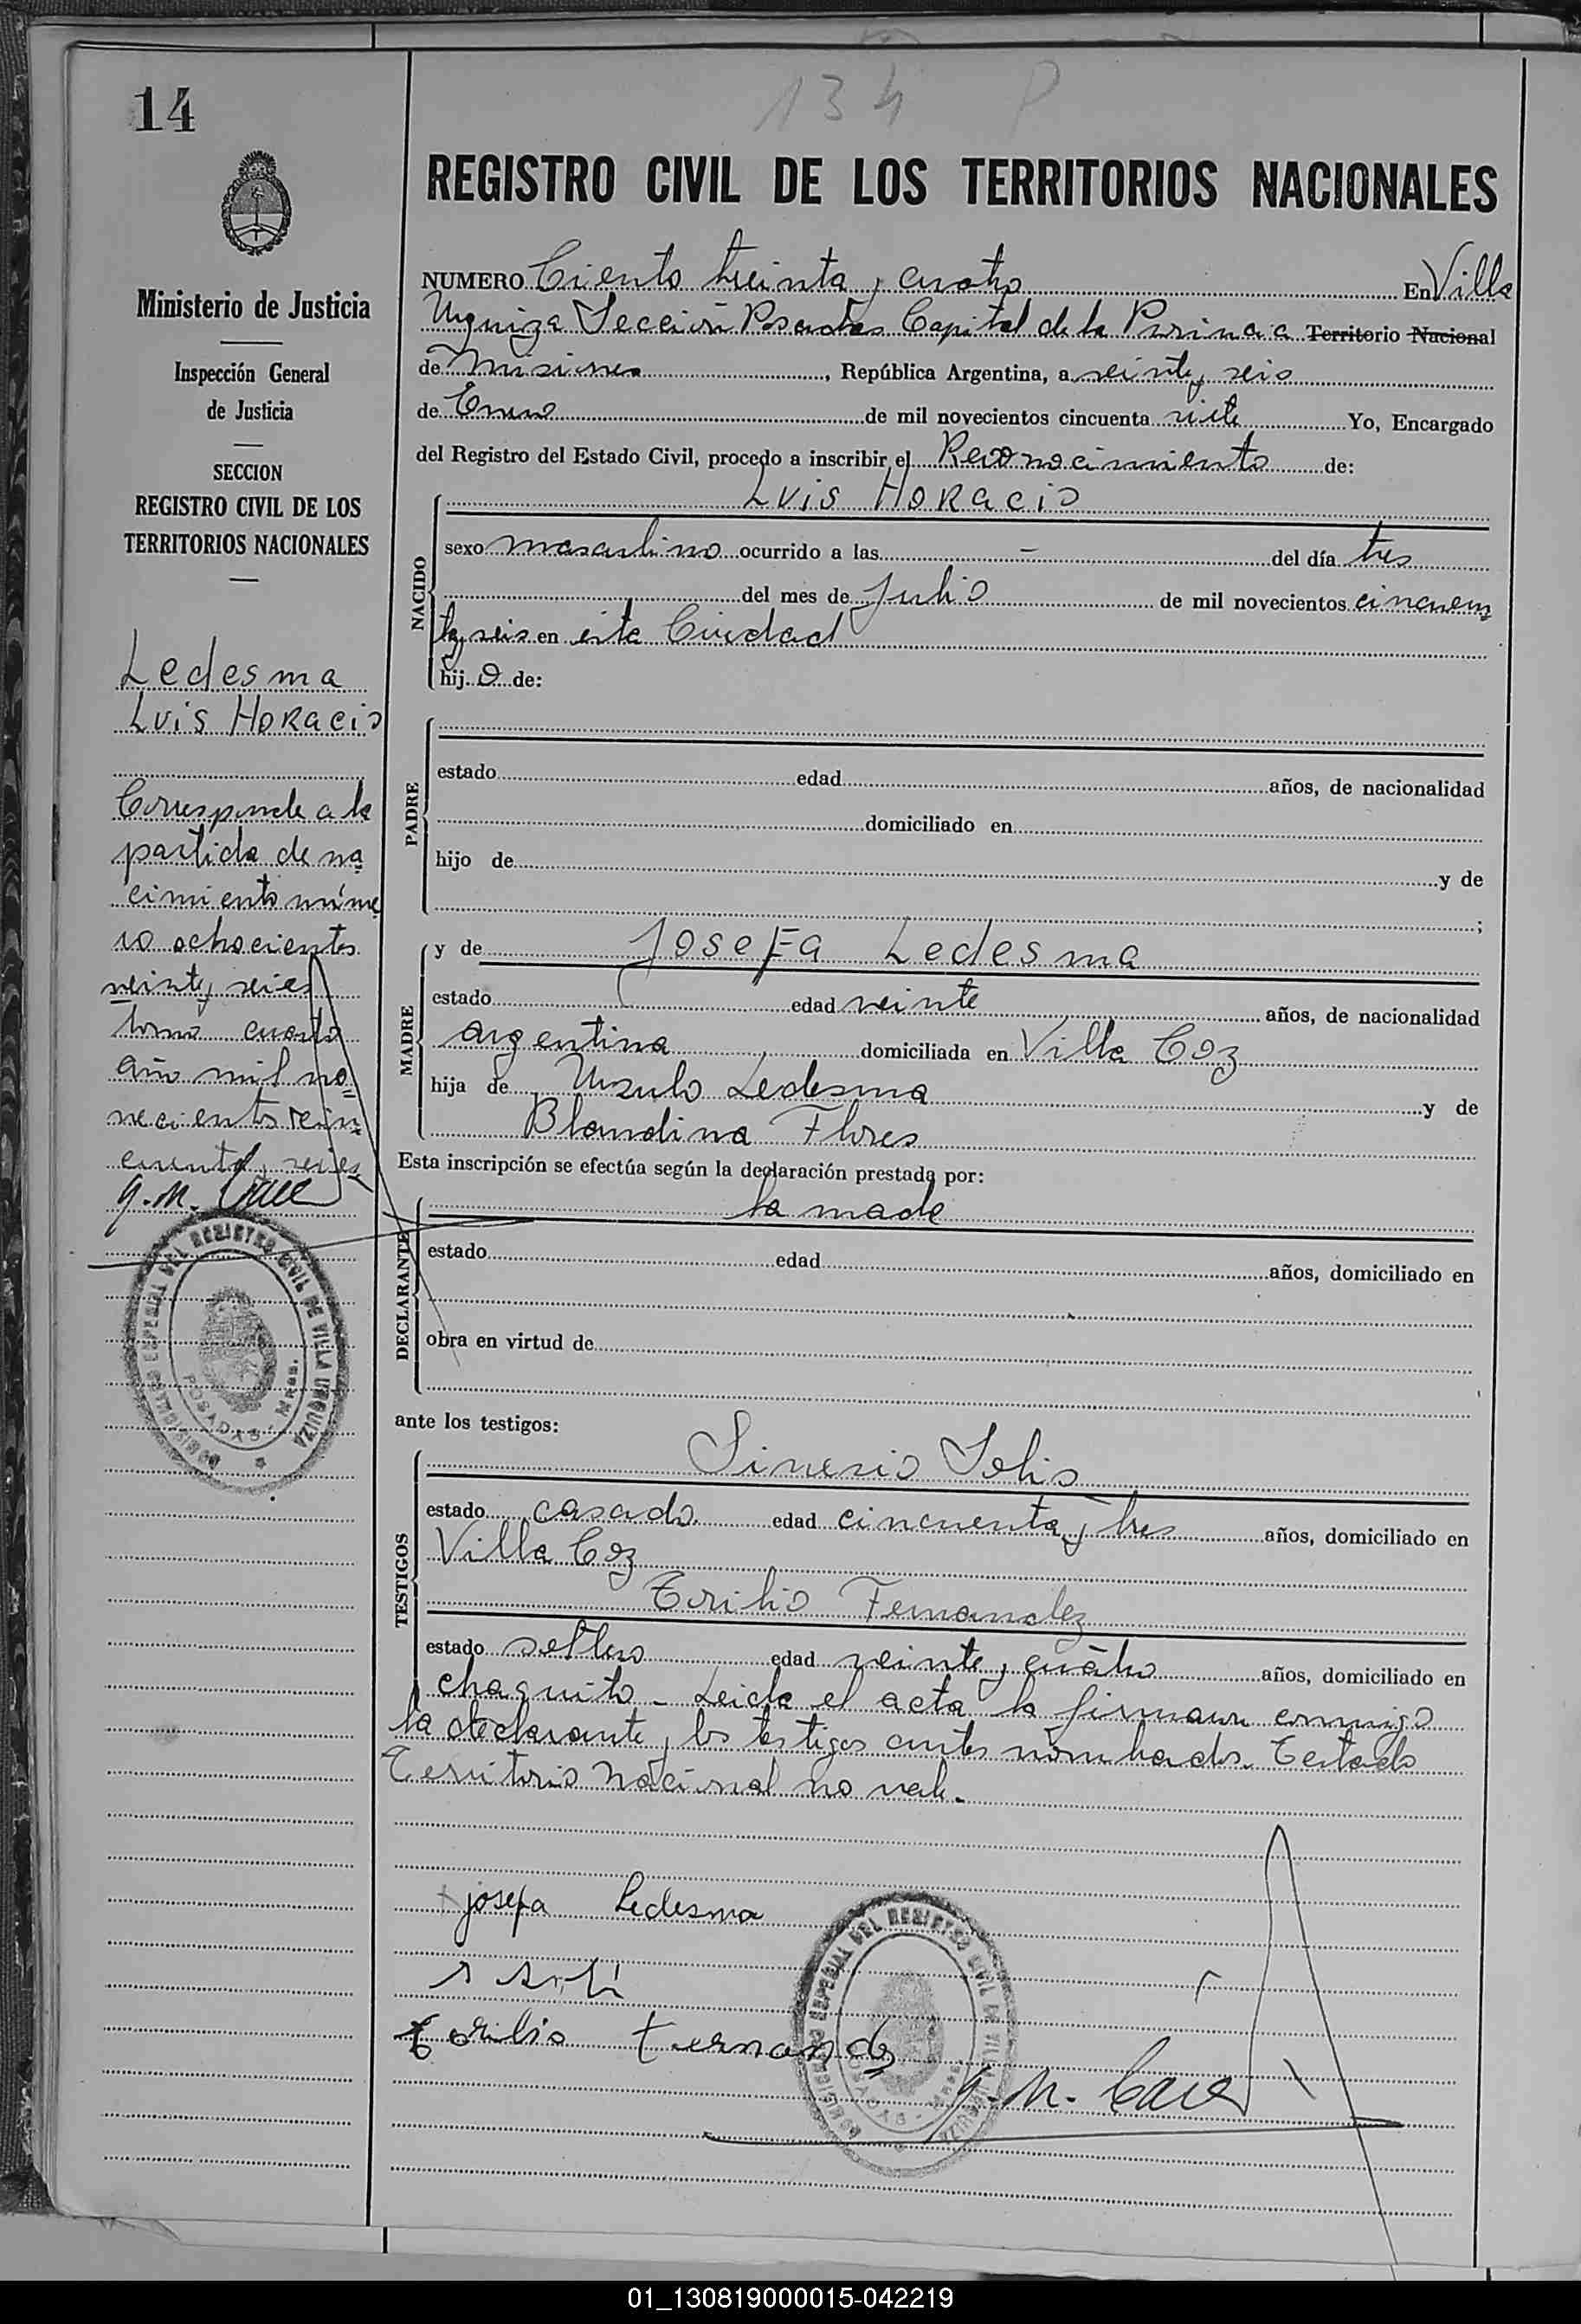 14
134 P
REGISTRO CIVIL DE LOS TERRITORIOS NACIONALES
Ministerio de Justicia
Inspección General
de Justicia
SECCION
REGISTRO CIVIL DE LOS
TERRITORIOS NACIONALES
Ledesma
Luis Horacio
Corresponde a la
partida de na
cimiento núme
ro ochocientos
veinte y seis
tomo cuarto
año mil no
vecientos cin
cuenta y seis
NUMERO Ciento treinta y cuatro En Villa
Urquiza Sección Posadas Capital de la Provincia Territorio Nacional
de Misiones, República Argentina, a veinte y seis
de Enero de mil novecientos cincuenta siete Yo, Encargado
del Registro del Estado Civil, procedo a inscribir el Reconocimiento de:
NACIDO
Luis Horacio
sexo masculino ocurrido a las - del día tres
del mes de Julio de mil novecientos cincuen
ta y seis en esta Ciudad
hijo de:
PADRE
estado edad años, de nacionalidad
domiciliado en
hijo de y de
;
MADRE
y de Josefa Ledesma
estado edad veinte años, de nacionalidad
argentina domiciliada en Villa Coz
hija de Ursulo Ledesma y de
Blandina Flores
Esta inscripción se efectúa según la declaración prestada por:
DECLARANTE
la madre
estado edad años, domiciliado en
obra en virtud de
ante los testigos:
TESTIGOS
Sinesio Solis
estado casado edad cincuenta y tres años, domiciliado en
Villa Coz
Torilio Fernandez
estado soltero edad veinte y cuatro años, domiciliado en
chaquito - Leida el acta la firman conmigo
la declarante y los testigos antes nombrados. Testado
Territorio Nacional no vale.
josefa Ledesma
Torilio Fernandez
POSADAS - Mnes.
REGISTRO CIVIL DE VILLA URQUIZA
01_130819000015-042219